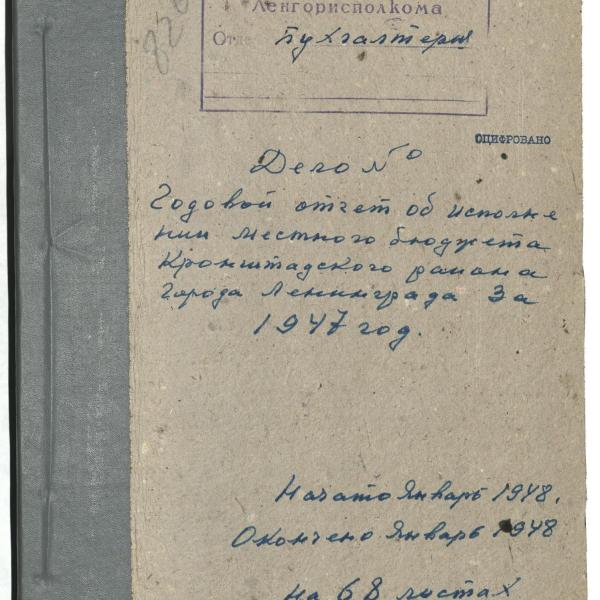 Ленгорисполкома
Отде Бухгалтерия
ОЦИФРОВАНО
Дело №
Годовой отчет об исполне
нии местного бюджета
Кронштадского района
города Ленинграда за
1947 год.
Начато Январь 1948.
Окончено Январь 1948
на 68 листах